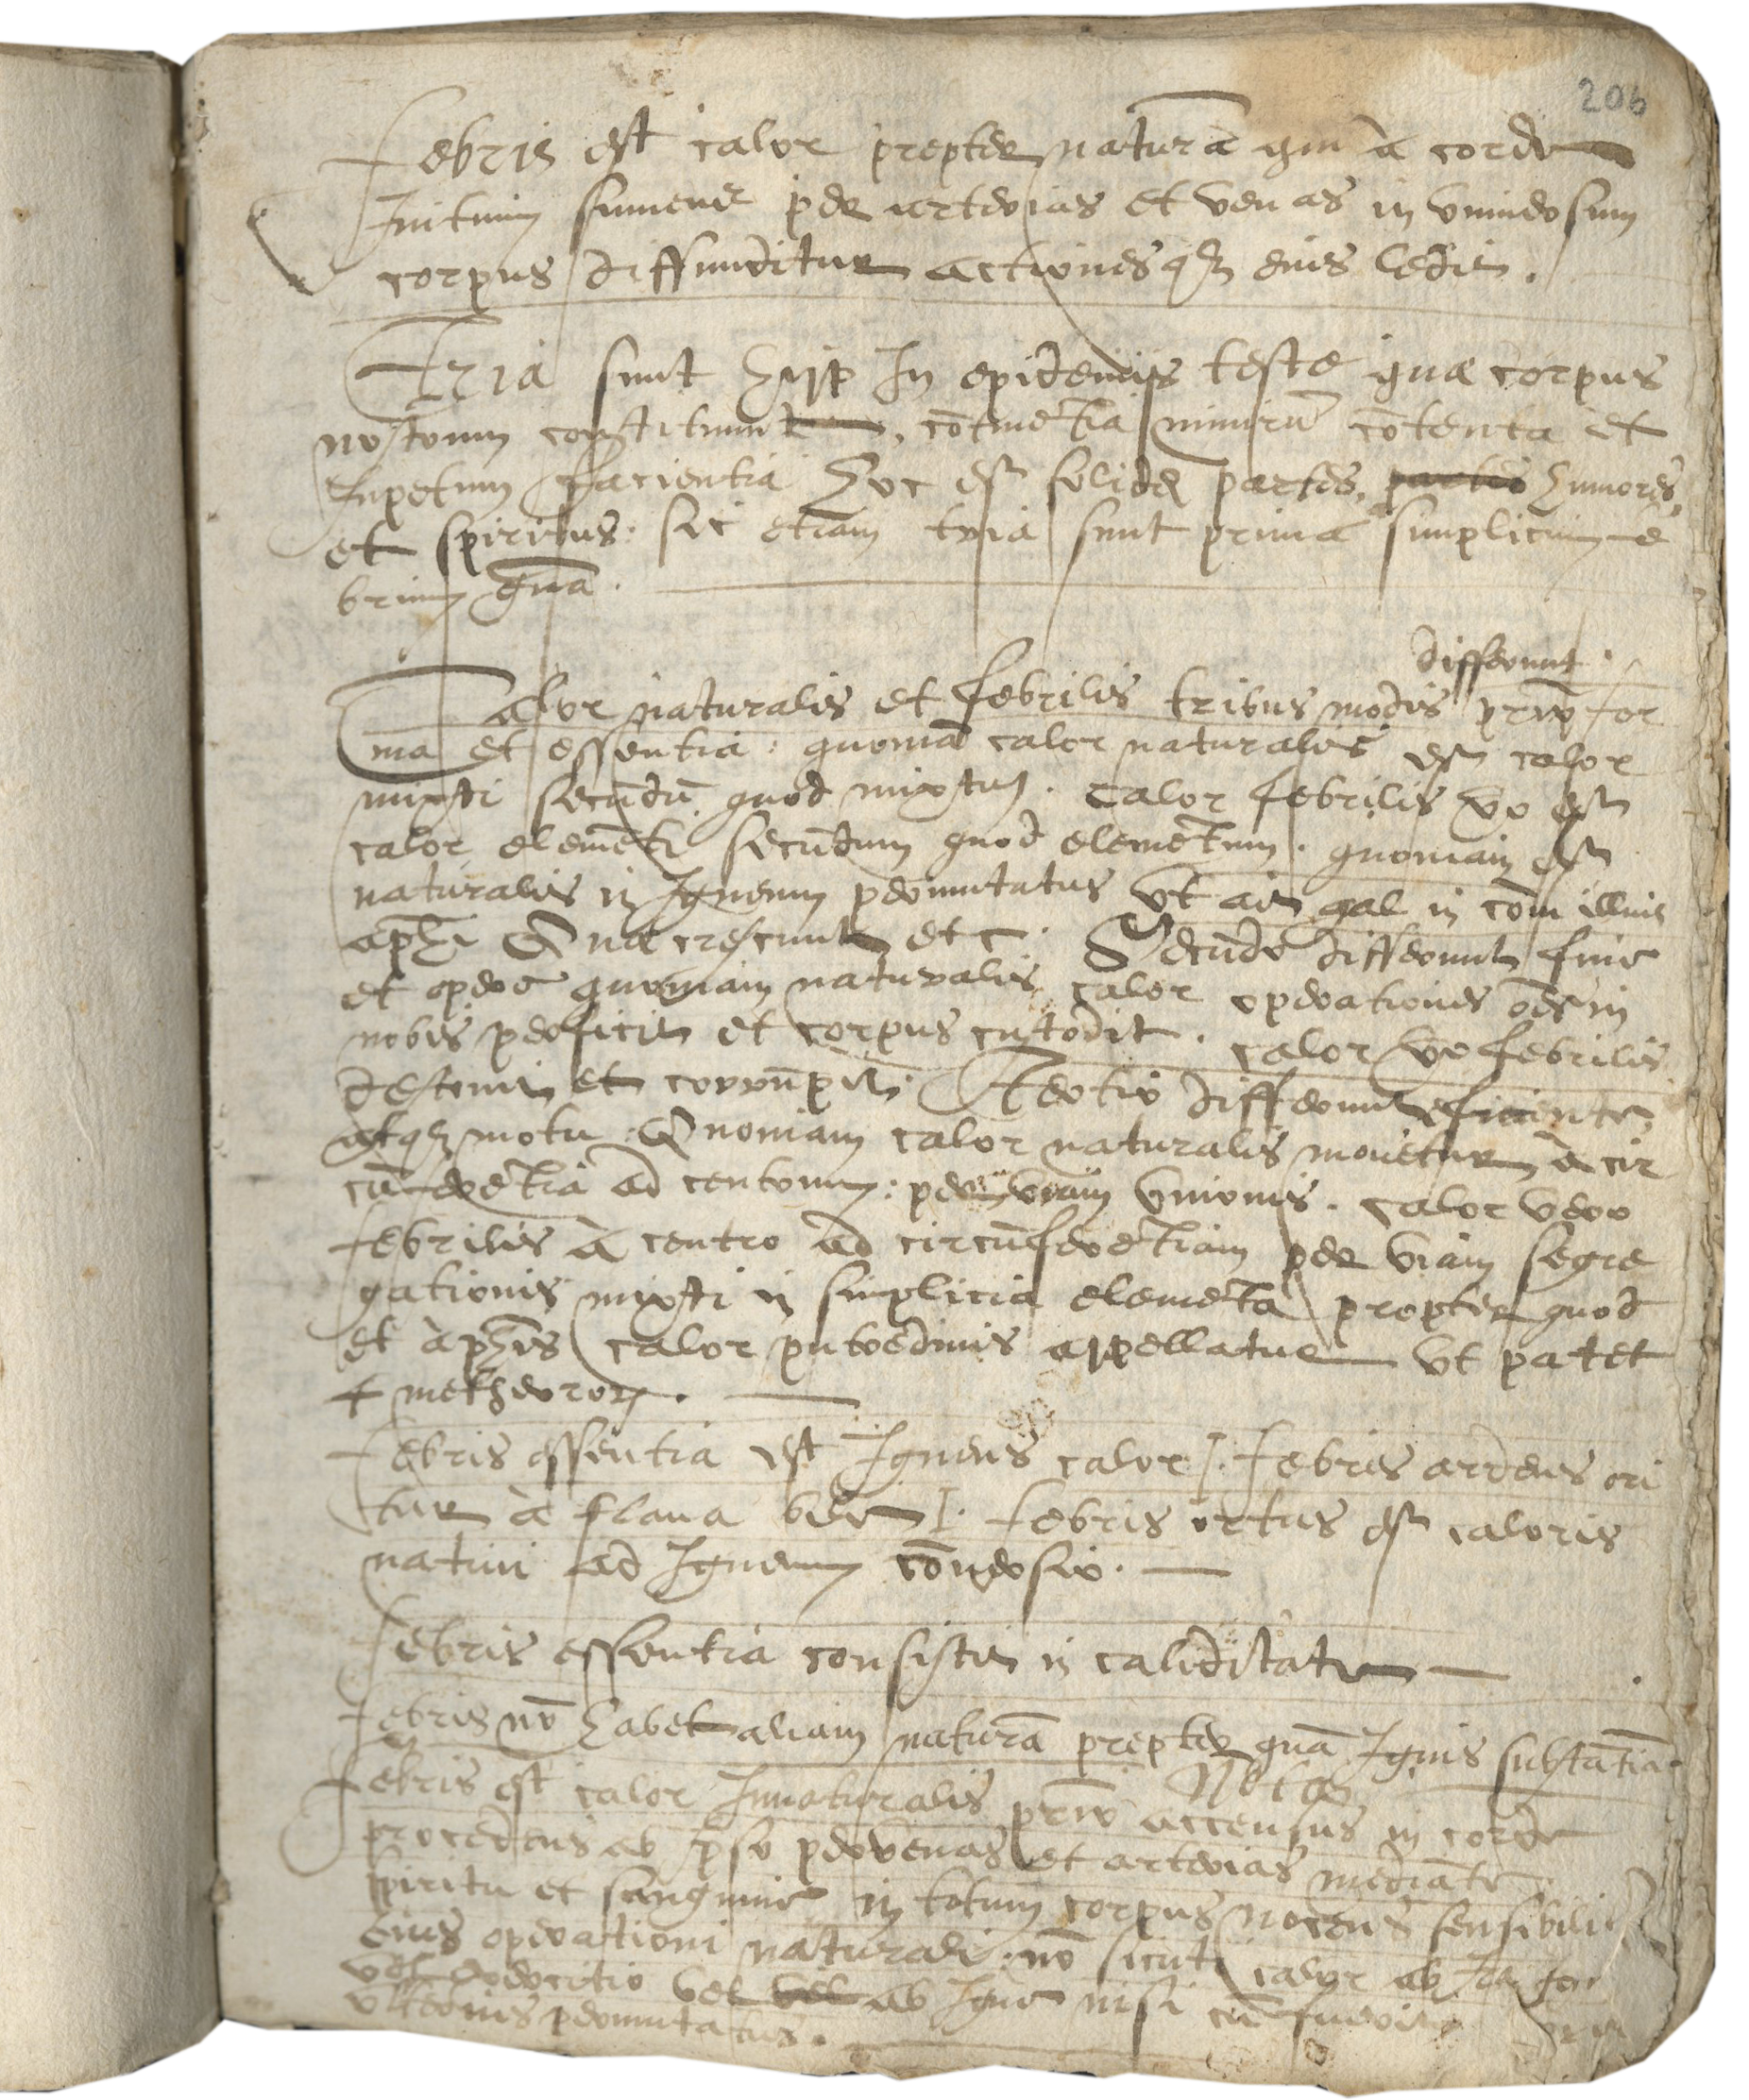 206
Febris est calor prepter naturã qui à corde
Initium sumens per arterias et venas in vniuersum
corpus diffunditur actionesq3 eius ledit.
Tria sunt hypp In epidemijs teste quæ corpus
nostrum constituunt, cõtinẽtia nimirũ cõtenta et
Inpetum facientia hoc est solidę partes, partes humores,
et spiritus: sic etiam tria sunt prima simplicium fe
brium gña.
differunt.
Calor naturalis et febrilis tribus modis primo for
ma et essentia: quoniã calor naturalis est calor
mixti secũdũ quod mixtum. Calor febrilis vo est
calor elemẽti secũndum quod elemẽtum. quoniam est
naturalis in Igneum permutatus vt ait gal in com̃ illius
aphi Quæ crescunt etc. Secũdo differunt fine
et opere quoniam naturalis calor operationes oẽs in
nobis perficit et corpus custodit. calor vo febrilis
destruit et corrũnpit. Tertio differunt eficiente
atq3 motu. Quoniam calor naturalis mouetur à cir
cũferẽtia ad centrum: per viam vnionis. calor vero
febrilis à centro ad circũnferẽtiam per viam segre
gationis mixti in simplicia elemẽta propter quod
et à phis calor putredinis appellatur vt patet
4 metheoror.
Febris essentia est Igneus calor. Febris ardens ori
tur à flaua bile. febris ortus est caloris
natiui ad Igneum cõnuersio.
Febris essentia consistit in caliditate
Febris nõ habet aliam naturã prepter quã Ignis substãtia.
Nota
Febris est calor Innaturalis primo accensus in corde
procedens ab Ipso per venas et arterias mediãte
spiritu et sanguine in totum corpus nocens sensibili
eius operationi naturali: nõ sicuti calor ab
vel exercitio vel vel ab Igne nisi cũ fuerit
vlterius permutatus.